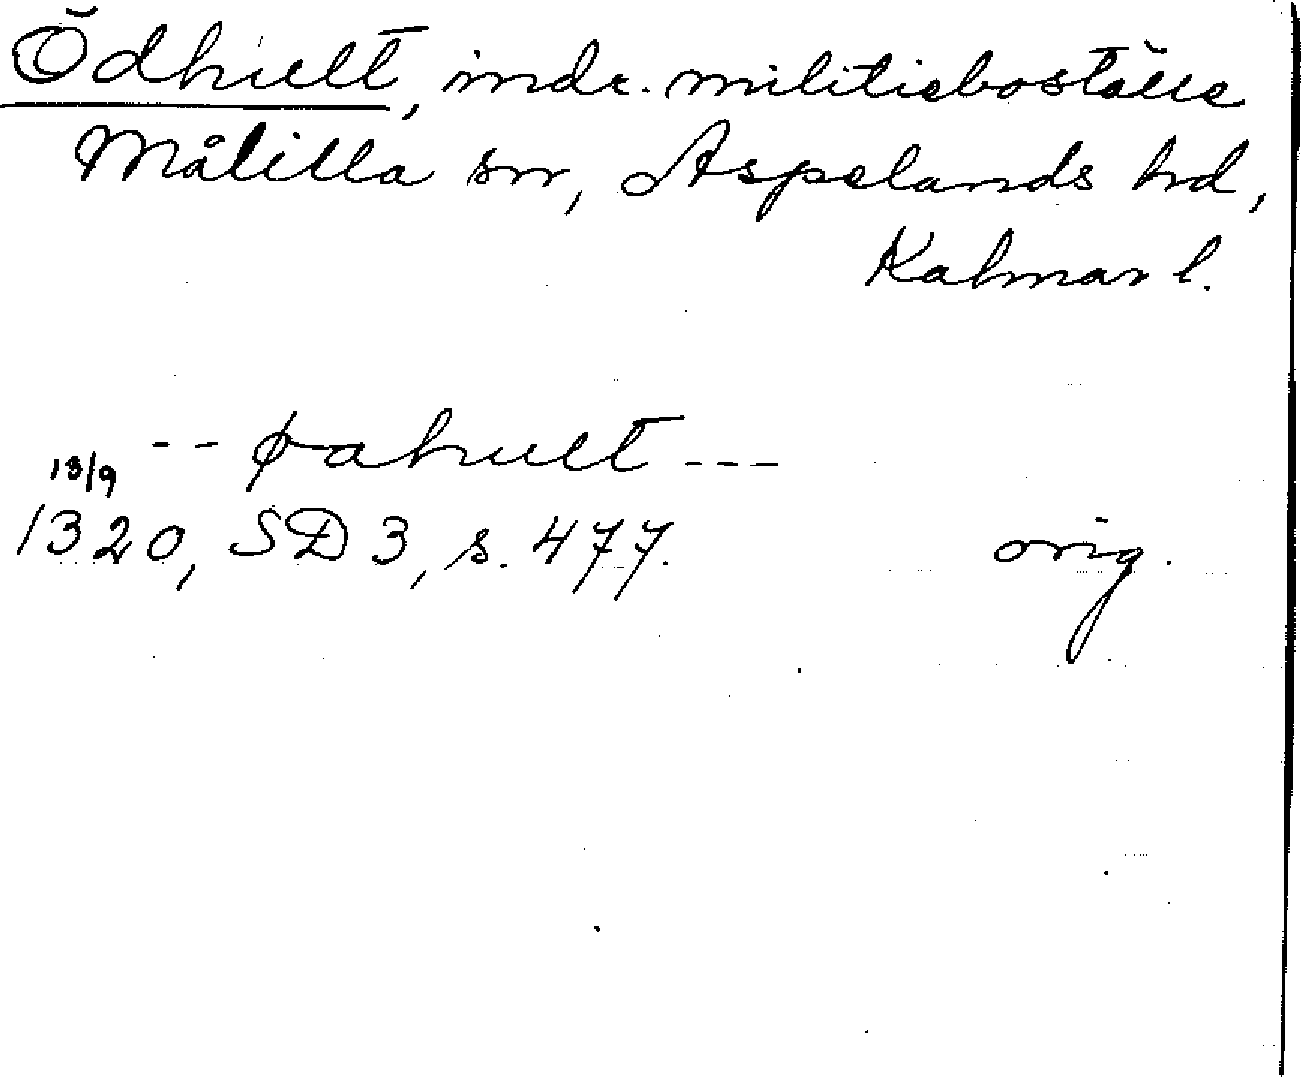 Ödhult, indr. militieboställe
Målilla sn, Aspelands hd,
Kalmar l.
-- øahult ---
13/9
1320, SD 3, s. 477. orig.